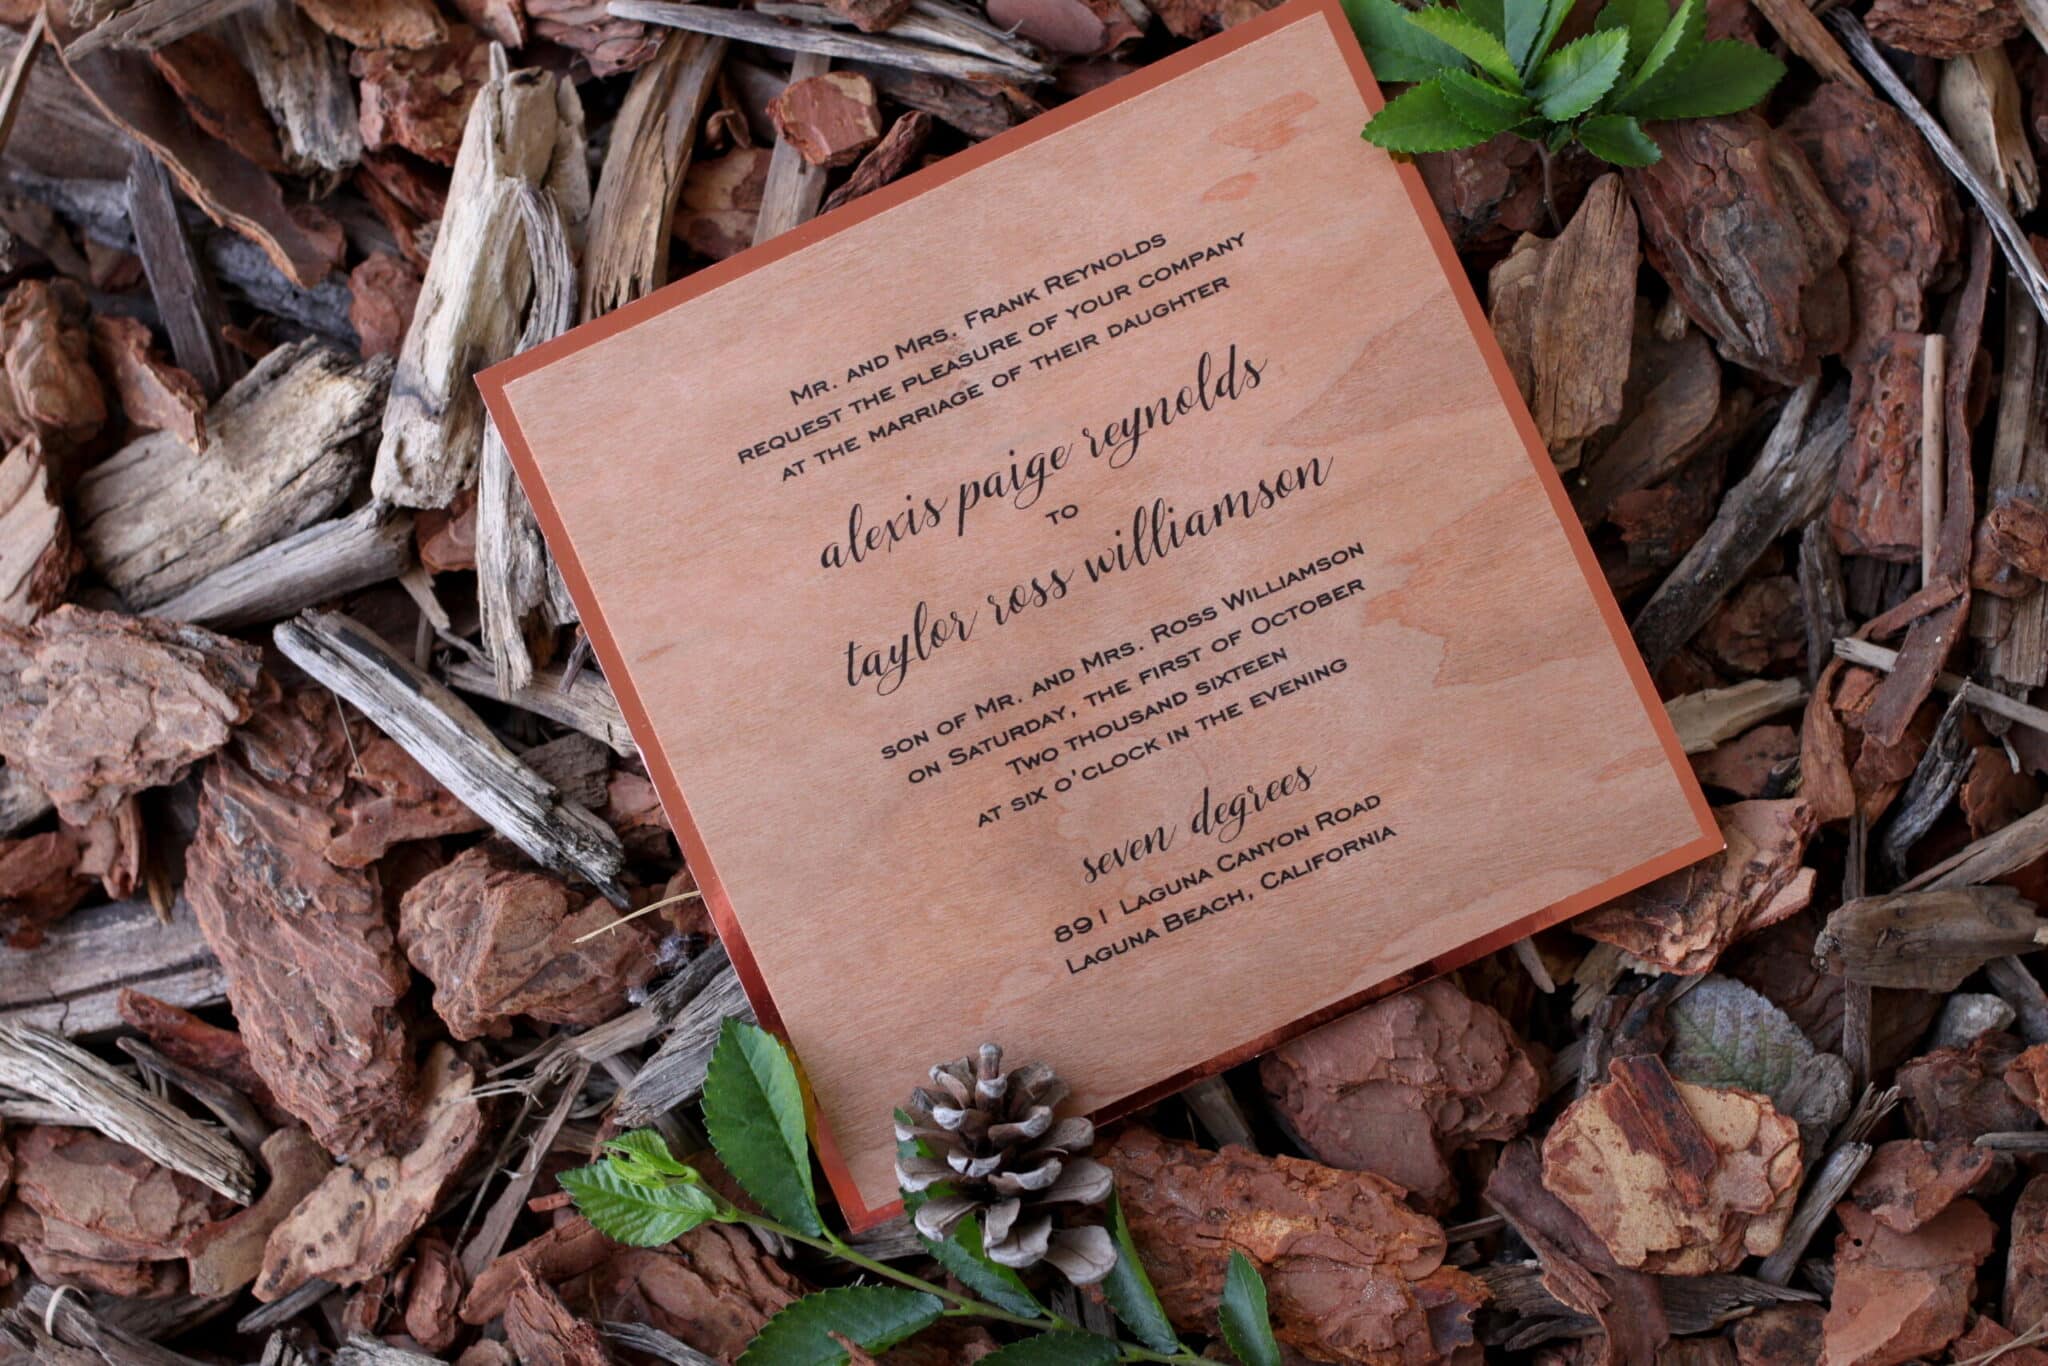 Mr. and Mrs. Frank Reynolds
request the pleasure of your company
at the marriage of their daughter
alexis paige reynolds
to
taylor ross williamson
son of Mr. and Mrs. Ross Williamson
on Saturday, the first of October
Two thousand sixteen
at six o'clock in the evening
seven degrees
891 Laguna Canyon Road
Laguna Beach, California